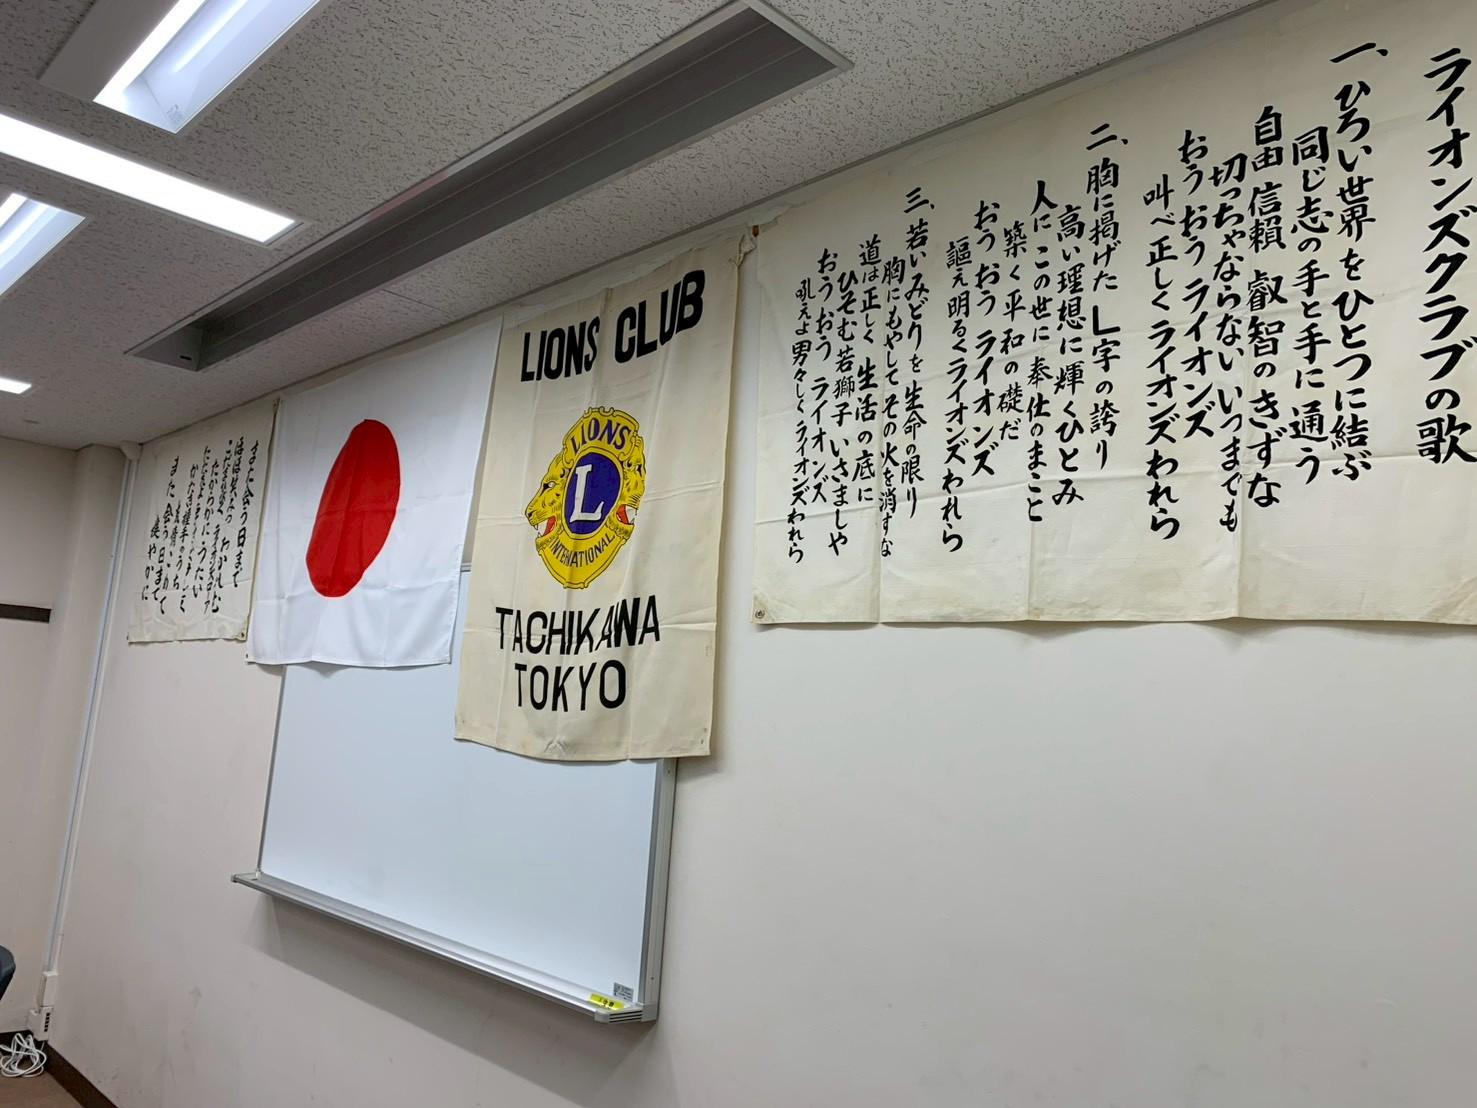 ライオンズクラブの歌
一、ひろい世界をひとつに結ぶ
同じ志の手と手に通う
自由 信頼 叡智のきずな
切っちゃならない いつまでも
おう おう ライオンズ
叫べ正しくライオンズわれら
二、胸に掲げた L字の誇り
高い理想に輝くひとみ
人にこの世に奉仕のまこと
築く平和の礎だ
おう おう ライオンズ
謳え明るくライオンズわれら
三、若いみどりを生命の限り
胸にもやしてその火を消すな
道は正しく生活の底に
ひそむ若獅子いさましや
おうおう ライオンズ
吼えよ男々しくライオンズわれら
LIONS CLUB
LIONS
L
INTERNATIONAL
TACHIKAWA
TOKYO
また会う日まで
また会う日まで